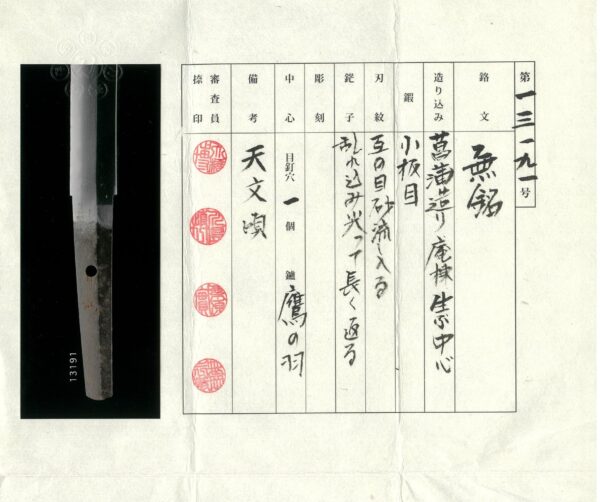 第一三一九一号
銘文 無銘
造り込み 菖蒲造り庵棟生ぶ中心
鍛 小板目
刃紋 互の目砂流し入る
鋩子 乱れ込み尖って長く返る
彫刻
中心 目釘穴 一個 鑢 鷹の羽
備考 天文頃
審査員
捺印
13191